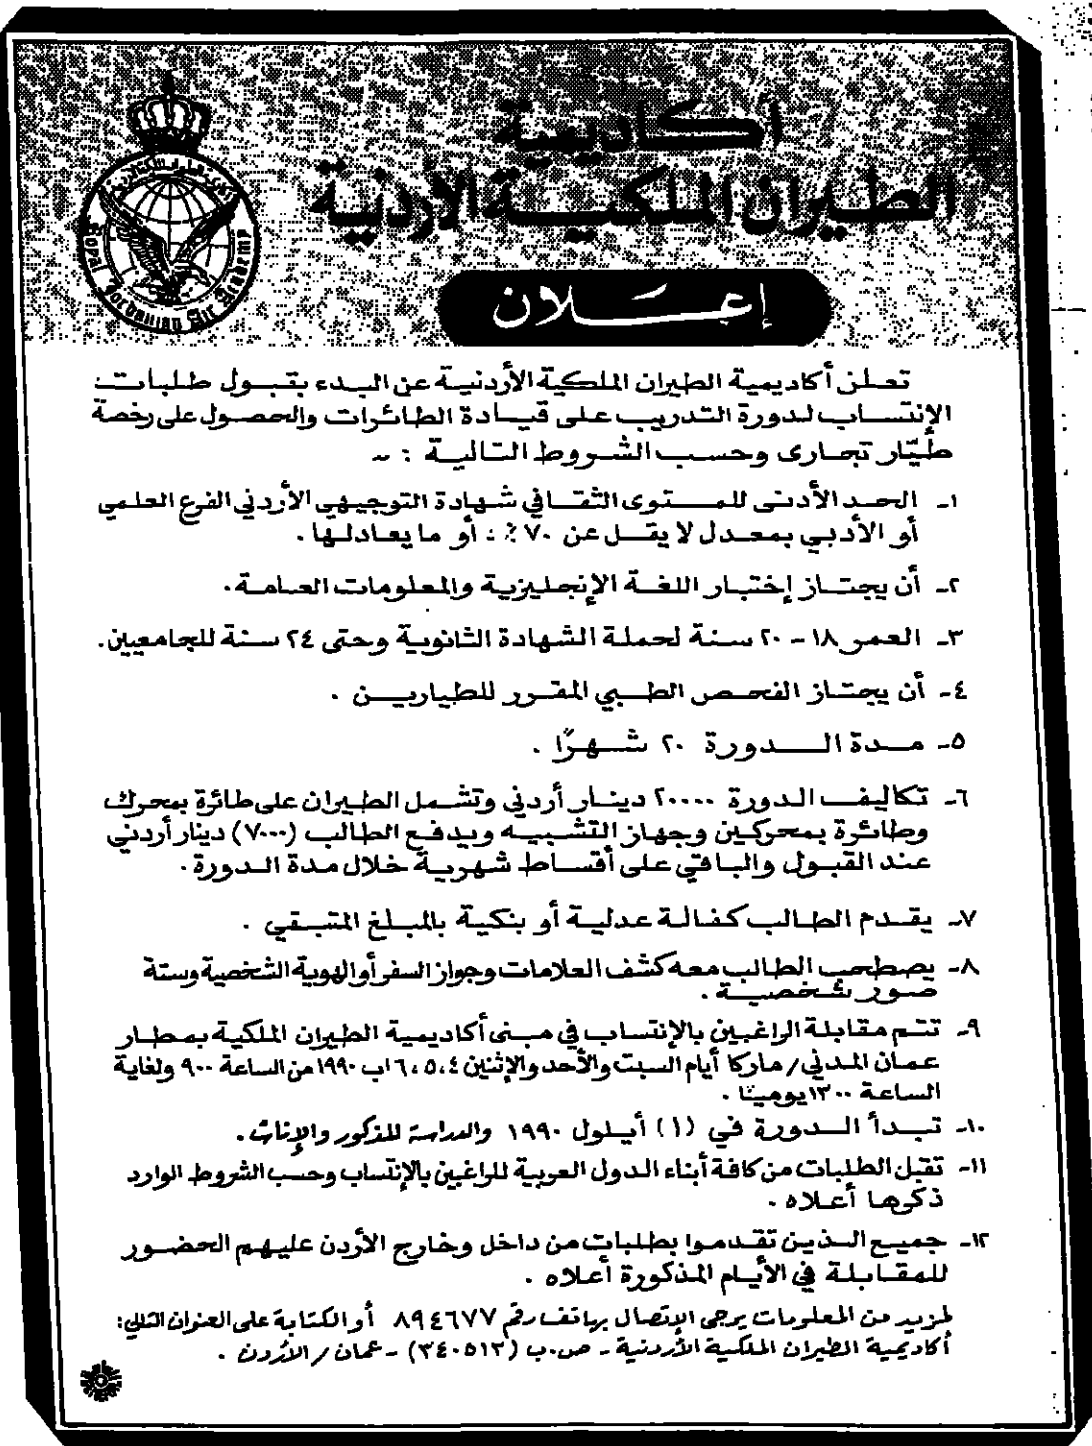 أكاديمية
الطيران الملكية الأردنية
Royal Jordanian Air Academy
إعلان
تعلن أكاديمية الطيران الملكية الأردنية عن البدء بقبول طلبات
الإنتساب لدورة التدريب على قيادة الطائرات والحصول على رخصة
طيّار تجارى وحسب الشروط التالية : -
١- الحد الأدنى للمستوى الثقافي شهادة التوجيهي الأردني الفرع العلمي
أو الأدبي بمعدل لا يقل عن ٧٠٪ : أو ما يعادلها .
٢- أن يجتاز إختبار اللغة الإنجليزية والمعلومات العامة .
٣- العمر ١٨ - ٢٠ سنة لحملة الشهادة الثانوية وحتى ٢٤ سنة للجامعيين .
٤- أن يجتاز الفحص الطبي المقرر للطيارين .
٥- مدة الدورة ٢٠ شهرًا .
٦- تكاليف الدورة ٢٠٠٠٠ دينار أردني وتشمل الطيران على طائرة بمحرك
وطائرة بمحركين وجهاز التشبيه ويدفع الطالب (٧٠٠٠) دينار أردني
عند القبول والباقي على أقساط شهرية خلال مدة الدورة .
٧- يقدم الطالب كفالة عدلية أو بنكية بالمبلغ المتبقي .
٨- يصطحب الطالب معه كشف العلامات وجواز السفر أو الهوية الشخصية وستة
صور شخصية .
٩- تتم مقابلة الراغبين بالإنتساب في مبنى أكاديمية الطيران الملكية بمطار
عمان المدني / ماركا أيام السبت والأحد والإثنين ٤، ٥، ٦ اب ١٩٩٠ من الساعة ٩٠٠ ولغاية
الساعة ١٣٠٠ يوميًا .
١٠- تبدأ الدورة في (١) أيلول ١٩٩٠ والدراسة للذكور والإناث .
١١- تقبل الطلبات من كافة أبناء الدول العربية للراغبين بالإنتساب وحسب الشروط الوارد
ذكرها أعلاه .
١٢- جميع الذين تقدموا بطلبات من داخل وخارج الأردن عليهم الحضور
للمقابلة في الأيام المذكورة أعلاه .
لمزيد من المعلومات يرجى الإتصال بهاتف رقم ٨٩٤٦٧٧ أو الكتابة على العنوان التالي:
أكاديمية الطيران الملكية الأردنية - ص.ب (٣٤٠٥١٣) - عمان / الأردن .